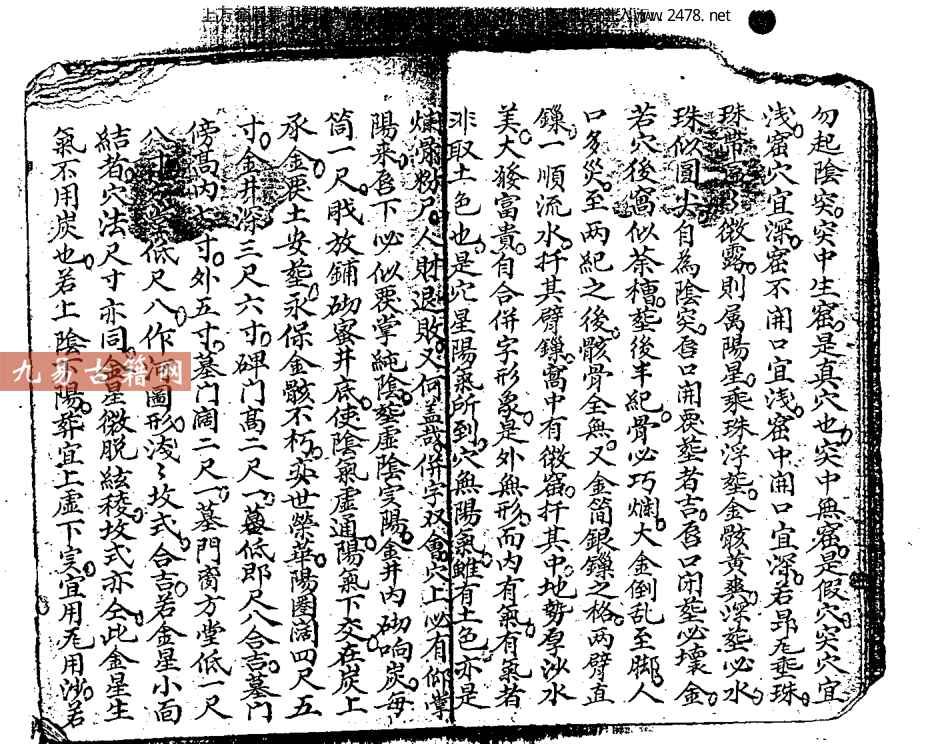 www.2478.net
勿起陰突突中生窟是真穴也突中無窟是假穴突穴宜
浅窟穴宜深窟不開口宜浅窟中開口宜深若昂尨垂珠
珠帶微露則属陽星乘珠浮塟金骸黄爽深塟必水
珠似圓尖自為陰突唇口開塟者吉唇口闭塟必壊金
若穴後窩似茶槽塟後半紀骨必巧爛大金倒乱至脚人
口多災至两紀之後骸骨全無又金筒銀鏁之格两臂直
鏁一順流水扦其臂鏁窩中有微窟扦其中地勢厚沙水
美大發富貴自合併字形象是外無形而内有氣有氣若
非取土色也是穴星陽氣所到穴無陽氣雖有土色亦是
爛骨粉尸人財退敗又何益哉併字双會穴上必有仰掌
陽来唇下必似覆掌純陰塟虚陰実陽金井内砌响炭每
筒一尺戥放鋪砌蜜井底使陰氣虚通陽氣下交在炭上
承金裹土安塟永保金骸不朽奕世榮華陽圏濶四尺五
寸金井深三尺六寸碑门高二尺一墓低即尺八合吉墓门
傍高内七寸外五寸墓门阔二尺一墓門脔方堂低一尺
八低尺八作河圖形浅〻坟式合吉若金星小面
結者穴法尺寸亦同金星微脱絃稜坟式亦仝此金星生
氣不用炭也若上陰下陽葬宜上虚下实宜用尨用沙若
九易古籍网